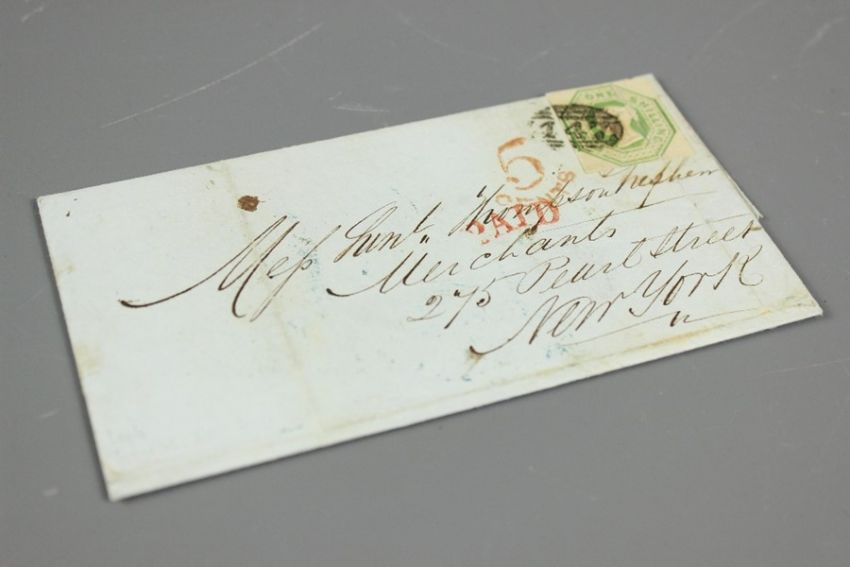 ONE SHILLING
5
PAID
Mess Saml Thompson Nephew
Merchants
275 Pearl Street
New York